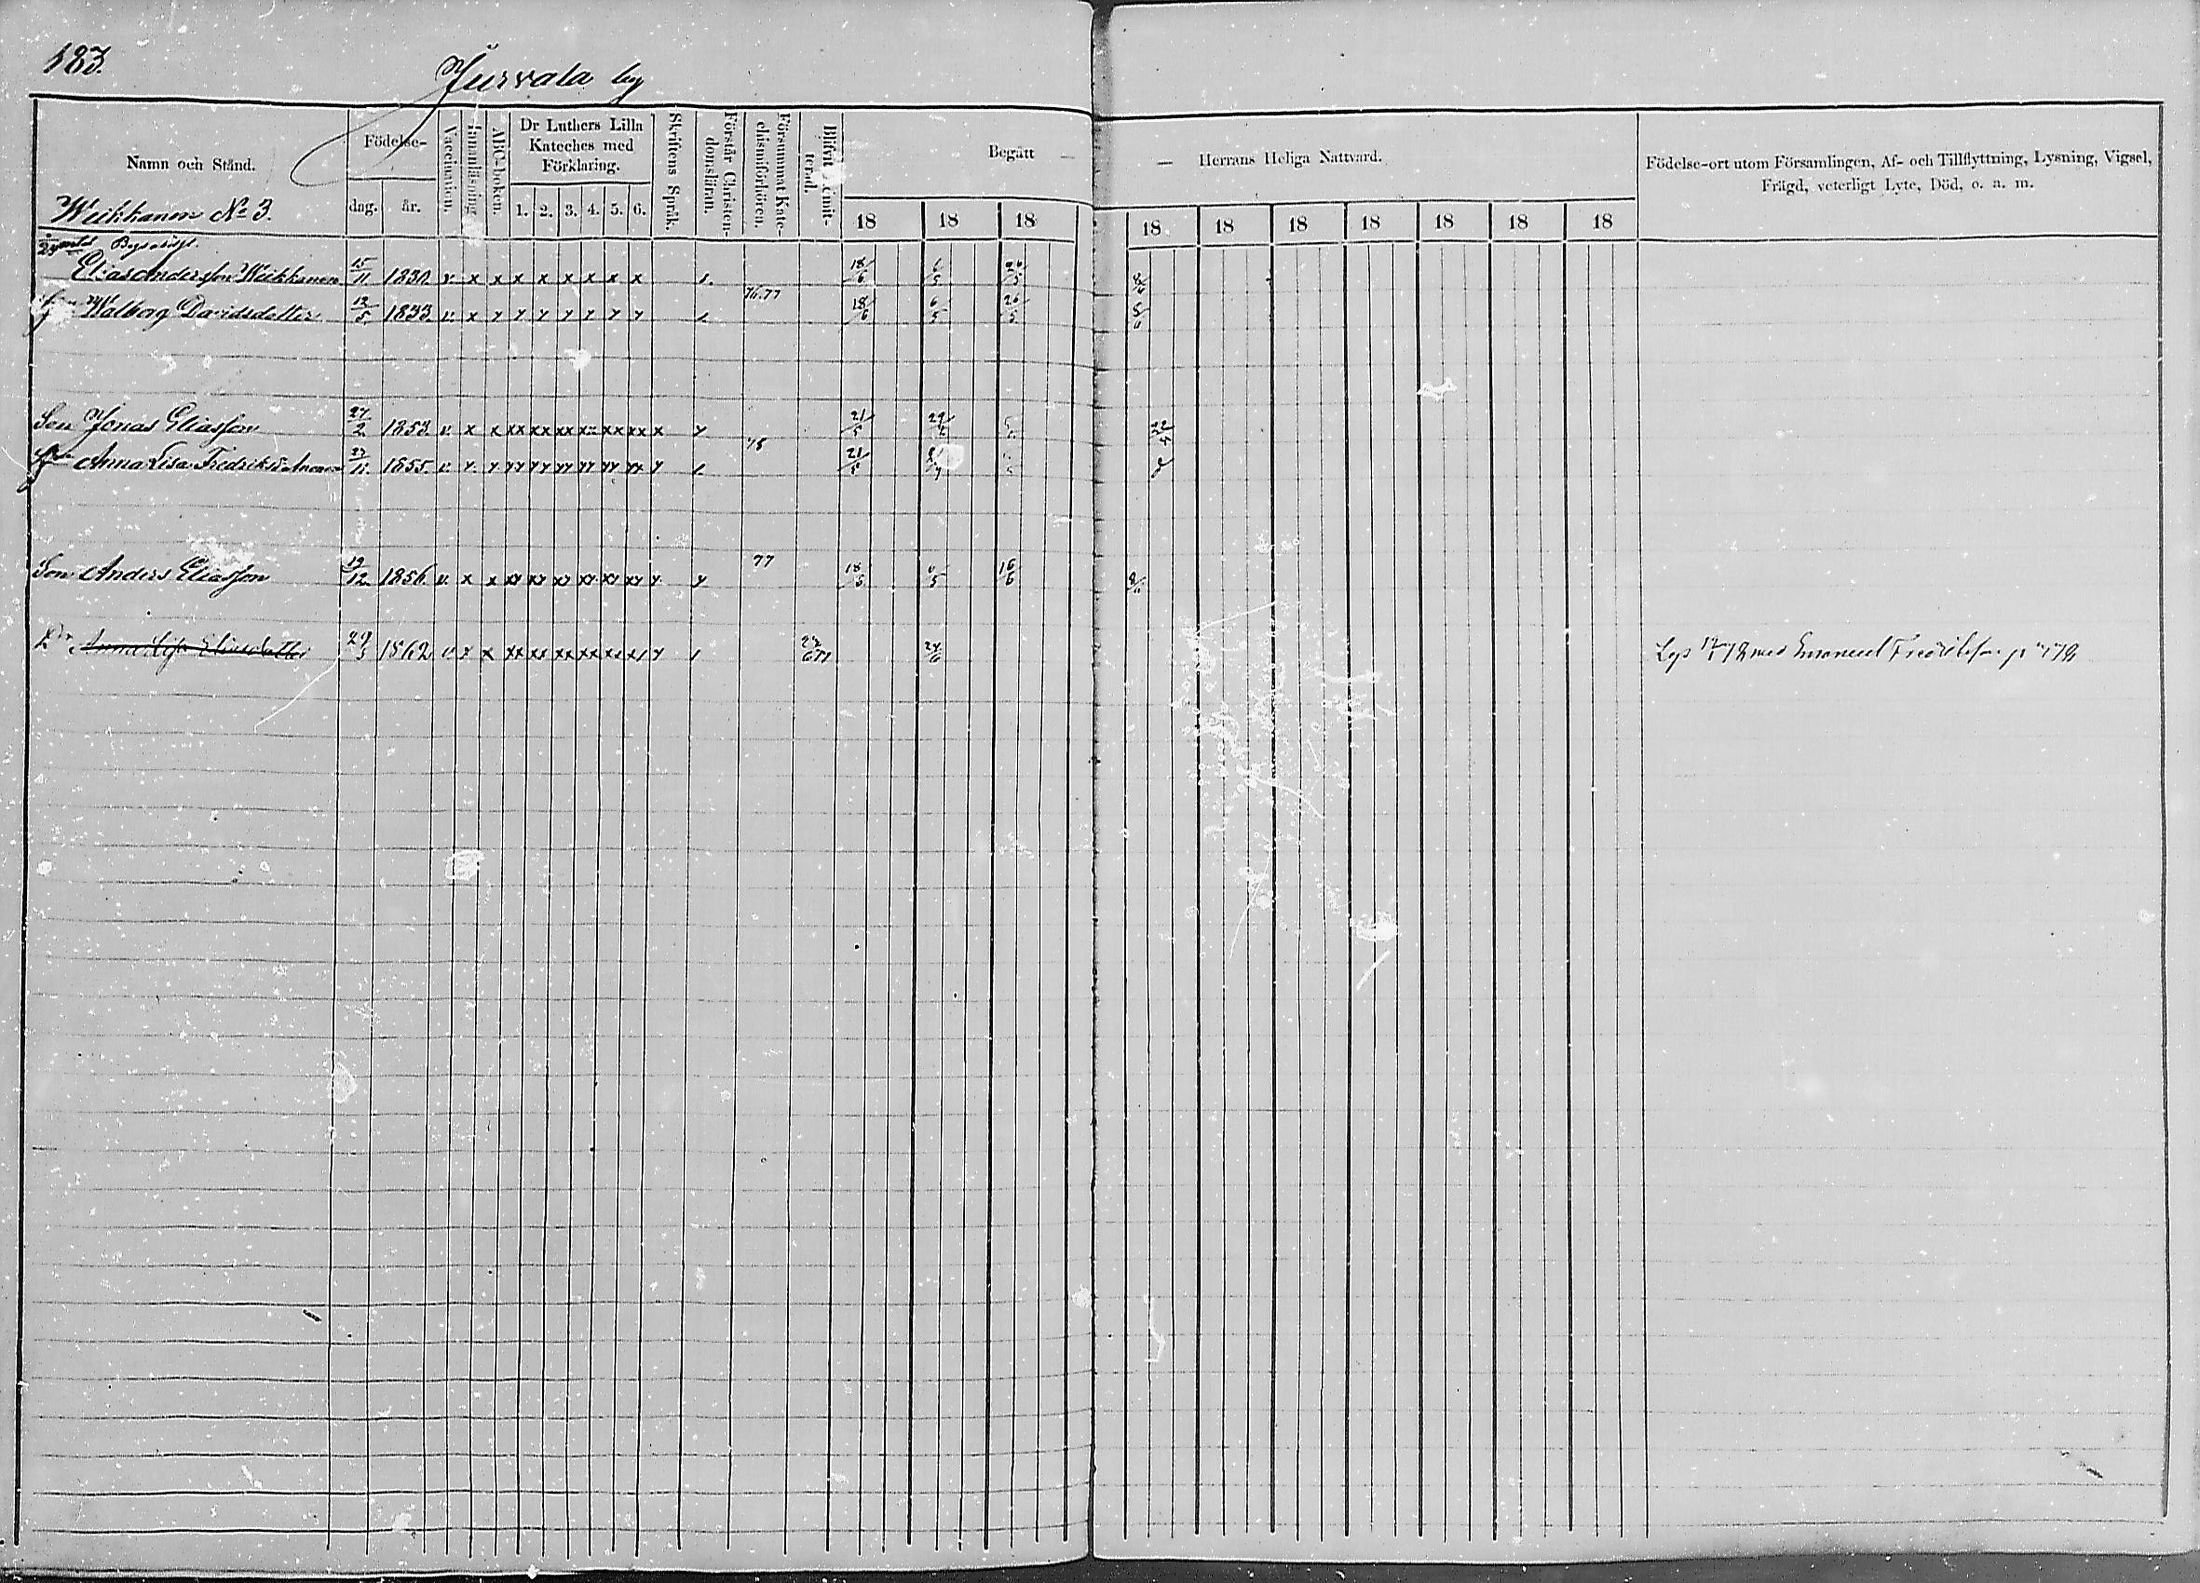 183.
Jurvala by
Namn och Stånd.
Födelse-
dag. år.
Vaccination.
Innanläsning.
ABC-boken.
Dr Luthers Lilla Kateches med Förklaring.
1. 2. 3. 4. 5. 6.
Skriftens Språk.
Förstår Christen-domsläran.
Försummat Kate-chismiförhören.
Blifvit Admit-terad.
Begått — — Herrans Heliga Nattvard.
18 18 18 18 18 18 18 18 18 18
Födelse-ort utom Församlingen, Af- och Tillflyttning, Lysning, Vigsel,
Frägd, veterligt Lyte, Död, o. a. m.
Weikkanen No 3.
Elias Andersson Weikkanen 15/11 1830. v. x x x x x x x x
76.77
Walborg Davidsdotter 12/5 1833. v. x y y y y y y y 18/6 6/5 26/5
Son Jonas Eliasson 27/2 1853. v. x x xx xx xx xx xx xx x y 21/5
78
Anna Lisa Fredriksd. 1855. v. y y yy yy yy yy yy yy y 21/5
77
Son Anders Eliasson 19/12 1856. v. x x xy xy xy xy xy xy y y 18/6 6/5 16/6
Dr Anna Lisa Eliasdotter 29/3 1862 v x x xx xx xx xx xx 24/6
Lys med Emanuel Fredriksson p